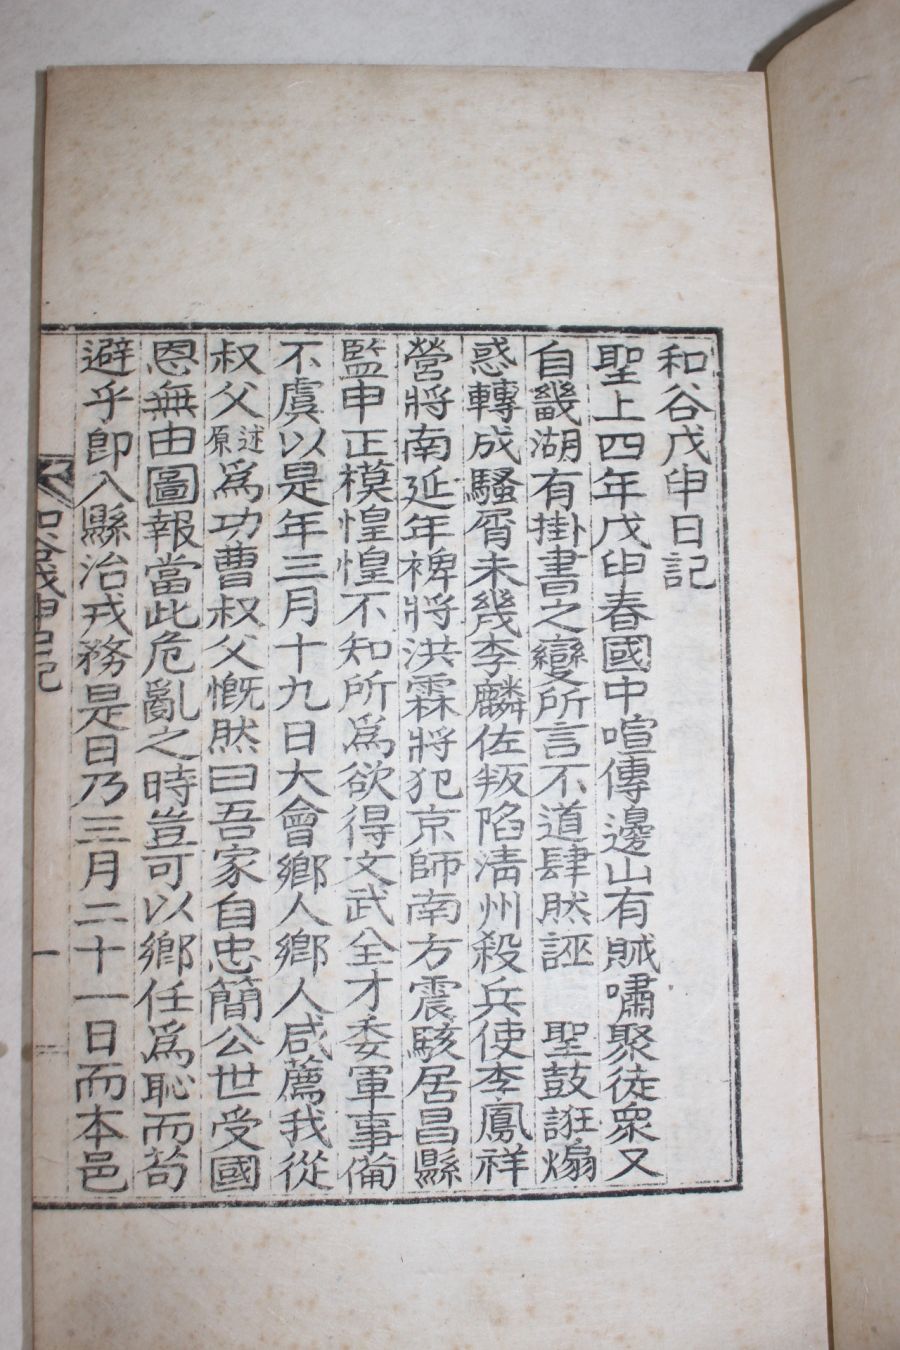 和谷戊申日記
聖上四年戊申春國中喧傳邊山有賊嘯聚徒衆又
自畿湖有掛書之變所言不道肆然誣 聖鼓誑煽
惑轉成騷屑未幾李麟佐叛陷淸州殺兵使李鳳祥
營將南延年裨將洪霖將犯京師南方震駭居昌縣
監申正模惶惶不知所爲欲得文武全才委軍事備
不虞以是年三月十九日大會鄕人鄕人咸薦我從
叔父述原爲功曹叔父慨然曰吾家自忠簡公世受國
恩無由圖報當此危亂之時豈可以鄕任爲恥而苟
避乎卽入縣治戎務是日乃三月二十一日而本邑
和谷戊申日記
一